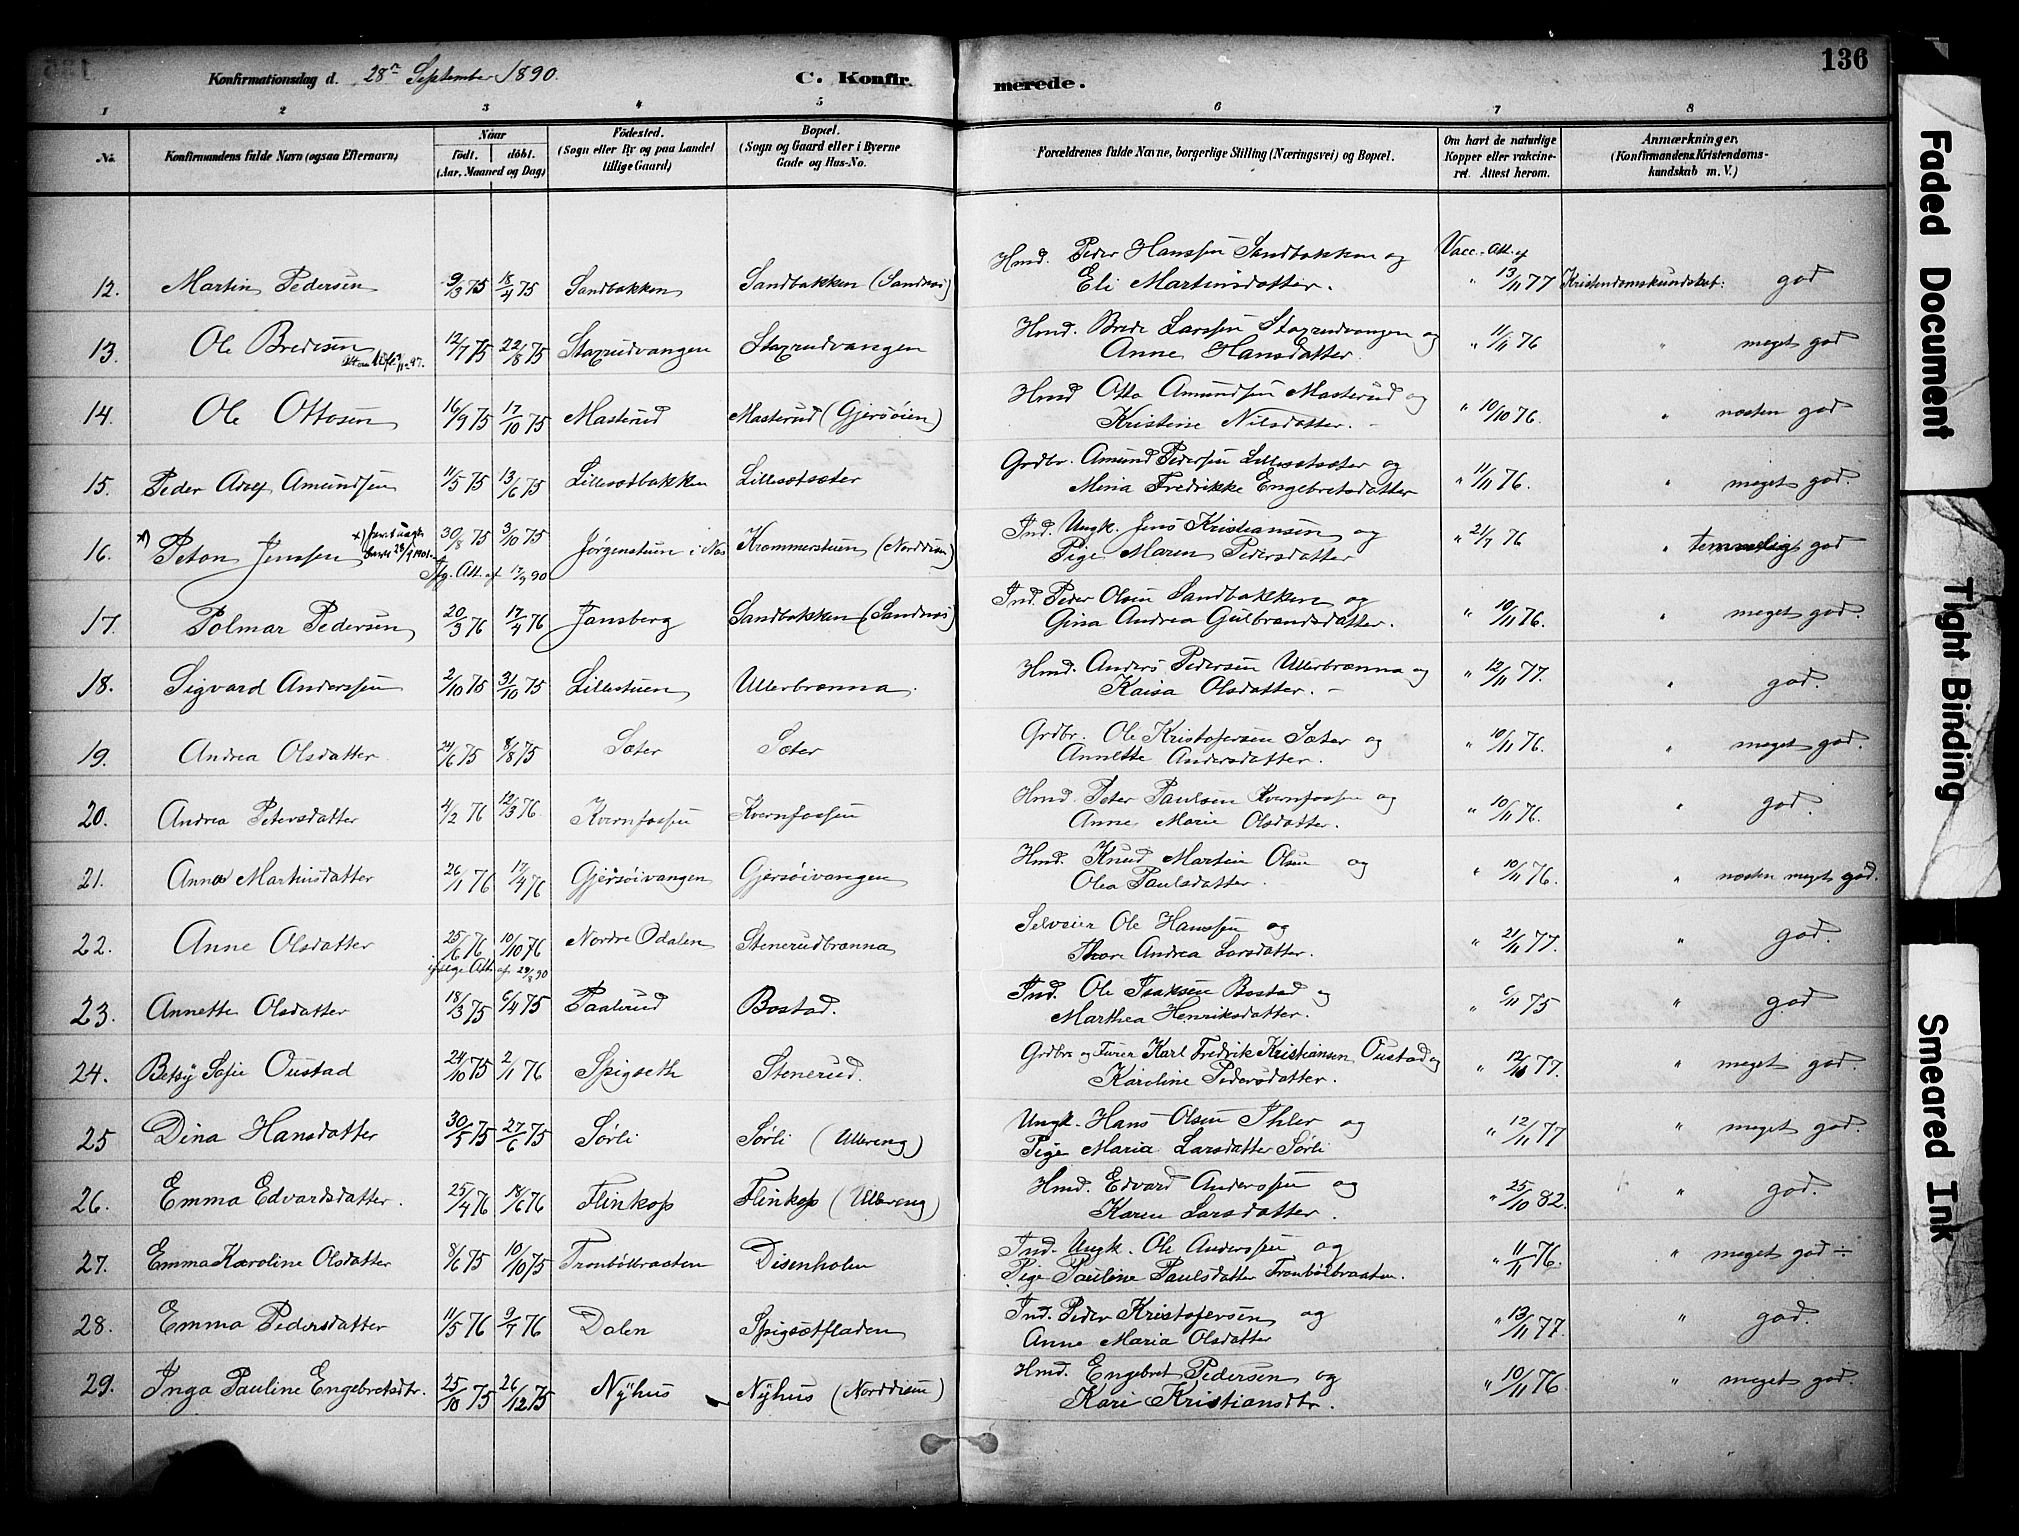 136
Konfirmationsdag d. 28de September 1890.
C. Konfirmerede.
1 2 3 4 5 6 7 8
No. Konfirmandens fulde Navn (ogsaa Efternavn) Naar født. døbt. (Aar, Maaned og Dag) Födested. (Sogn eller By og paa Landet tillige Gaard) Bopæl. (Sogn og Gaard eller i Byerne Gade og Hus-No. Forældrenes fulde Navne, borgerlige Stilling (Næringsvei) og Bopæl. Om havt de naturlige Kopper eller vakcineret. Attest herom. Anmærkninger. (Konfirmandens Kristendomskundskab m. V.)
12. Martin Pedersen 9/3 75 18/4 75 Sandbakken Sandbakken (Sandnæs) Hmd. Peder Hanssen Sandbakken og Eli Martinsdatter. Vacc. Att. af " 13/11 77 Kristendomskundskab: god
13. Ole Bredesen 12/7 75 22/8 75 Staxrudvangen Staxrudvangen Hmd. Brede Larssen Staxrudvangen og Anne Hansdatter. " 11/11 76 " meget god
14. Ole Ottosen 16/9 75 17/10 75 Masterud Masterud (Gjersøien) Hmd Otto Amundsen Masterud og Kristine Nilsdatter. " 10/10 76. " næsten god
15. Peder Adolf Amundsen 11/5 75 13/6 75 Lillesætbakken Lillesætsæter Grdbr. Amund Pedersen Lillesætsæter og Mina Fredrikke Engebretsdatter " 11/11 76. " meget god.
16. Peton Jenssen 30/8 75 3/10 75 Jørgenstuen i Næs Krommerstuen (Norddisen) Ind. Ungk. Jens Kristiansen og Pige Maren Pedersdatter " 21/7 76 " temmelig god
Ifg. Att. af 17/9 90
17. Polmar Pedersen 20/3 76 17/4 76 Jansberg Sandbakken (Sandnæs) Ind. Peder Olsen Sandbakken og Gina Andrea Gulbrandsdatter. " 10/11 76. " meget god.
18. Sigvard Anderssen 2/10 75 31/10 75 Lillestuen Ullerbrænna. Hmd. Anders Pedersen Ullerbrænna og Kaisa Olsdatter. " 12/11 77. " god.
19. Andrea Olsdatter 24/6 75 8/8 75 Sæter Sæter Grdbr. Ole Kristofersen Sæter og Annette Andersdatter. " 10/11 76. " meget god.
20. Andrea Petersdatter 4/2 76 12/3 76 Kvernfossen Kvernfossen Hmd. Peter Paulsen Kvernfossen og Anne Marie Olsdatter. " 10/11 76. " god
21. Anna Martinsdatter 26/1 76 17/4 76 Gjersøivangen Gjersøivangen Hmd. Knud Martin Olsen og Olea Paulsdatter. " 10/11 76. " næsten meget god.
22. Anne Olsdatter 25/6 76 10/10 76 Nordre Odalen Stenerudbrænna Selveier Ole Hanssen og Thore Andrea Larsdatter. " 21/11 77. " god.
23. Annette Olsdatter 18/3 75 6/11 75 Paalerud Bostad. Ind. Ole Isaksen Bostad og Marthea Henriksdatter. " 6/11 75 " god
24. Betsy Sofie Oustad 24/10 75 2/1 76 Spigseth Stenerud. Grdbr. og Furer Karl Fredrik Kristiansen Oustad og Karoline Pedersdatter. " 12/10 77. " meget god.
25 Dina Hansdatter 30/5 75 27/6 75 Sørli Sørli (Ullereng) Ungk. Hans Olsen Ihler og Pige Maria Larsdatter Sørli " 12/11 77 " meget god.
26. Emma Edvardsdatter. 25/4 76 18/6 76 Flinkop Flinkop (Ullereng) Hmd. Edvard Anderssen og Karen Larsdatter. " 25/10 82. " god.
27. Emma Karoline Olsdatter 8/6 75 10/10 75 Tronbølbraaten Disenholen Ind. Ungk. Ole Anderssen og Pige Pauline Paulsdatter Tronbølbraaten. " 11/11 76. " meget god ÷
28. Emma Pedersdatter 11/5 76 9/7 76 Dalen Spigsætfladen Ind. Peder Kristofersen og Anne Maria Olsdatter " 13/11 77. " god.
29. Inga Pauline Engebretsdtr. 25/10 75 26/12 75 Nÿhus Nÿhus (Norddisen) Hmd. Engebret Pedersen og Kari Kristiansdtr. " 10/11 76 " meget god.
Faded Document
Tight Binding
Smeared Ink